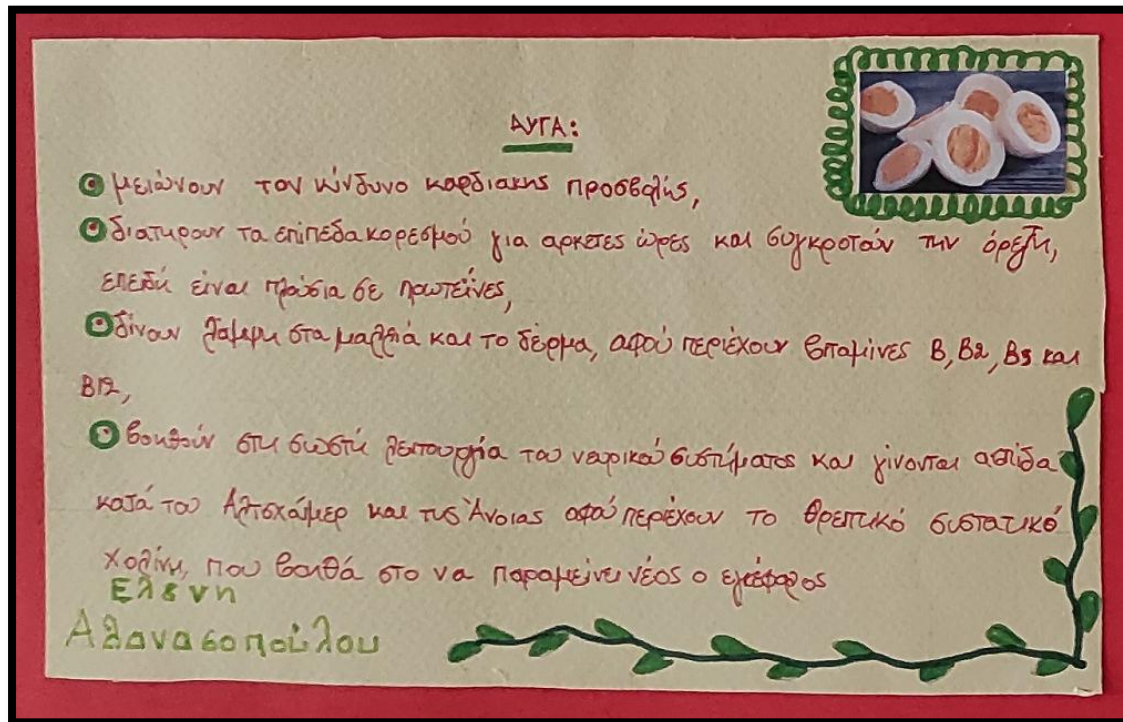 ΑΥΓΑ:
μειώνουν τον κίνδυνο καρδιακης προσβολής,
διατηρουν τα επίπεδα κορεσμού για αρκετες ώρες και συγκροτούν την όρεξη,
επειδή είναι πλούσια σε πρωτεΐνες,
δίνουν λάμψη στα μαλλιά και το δέρμα, αφού περιέχουν βιταμίνες Β, Β2, Β5 και
Β12,
βοηθούν στη σωστή λειτουργία του νευρικού συστήματος και γίνονται ασπίδα
κατά του Αλτσχάιμερ και της Άνοιας αφού περιέχουν το θρεπτικό συστατικό
χολίνη, που βοηθά στο να παραμείνει νέος ο εγκέφαλος
Ελενη
Αθανασοπούλου